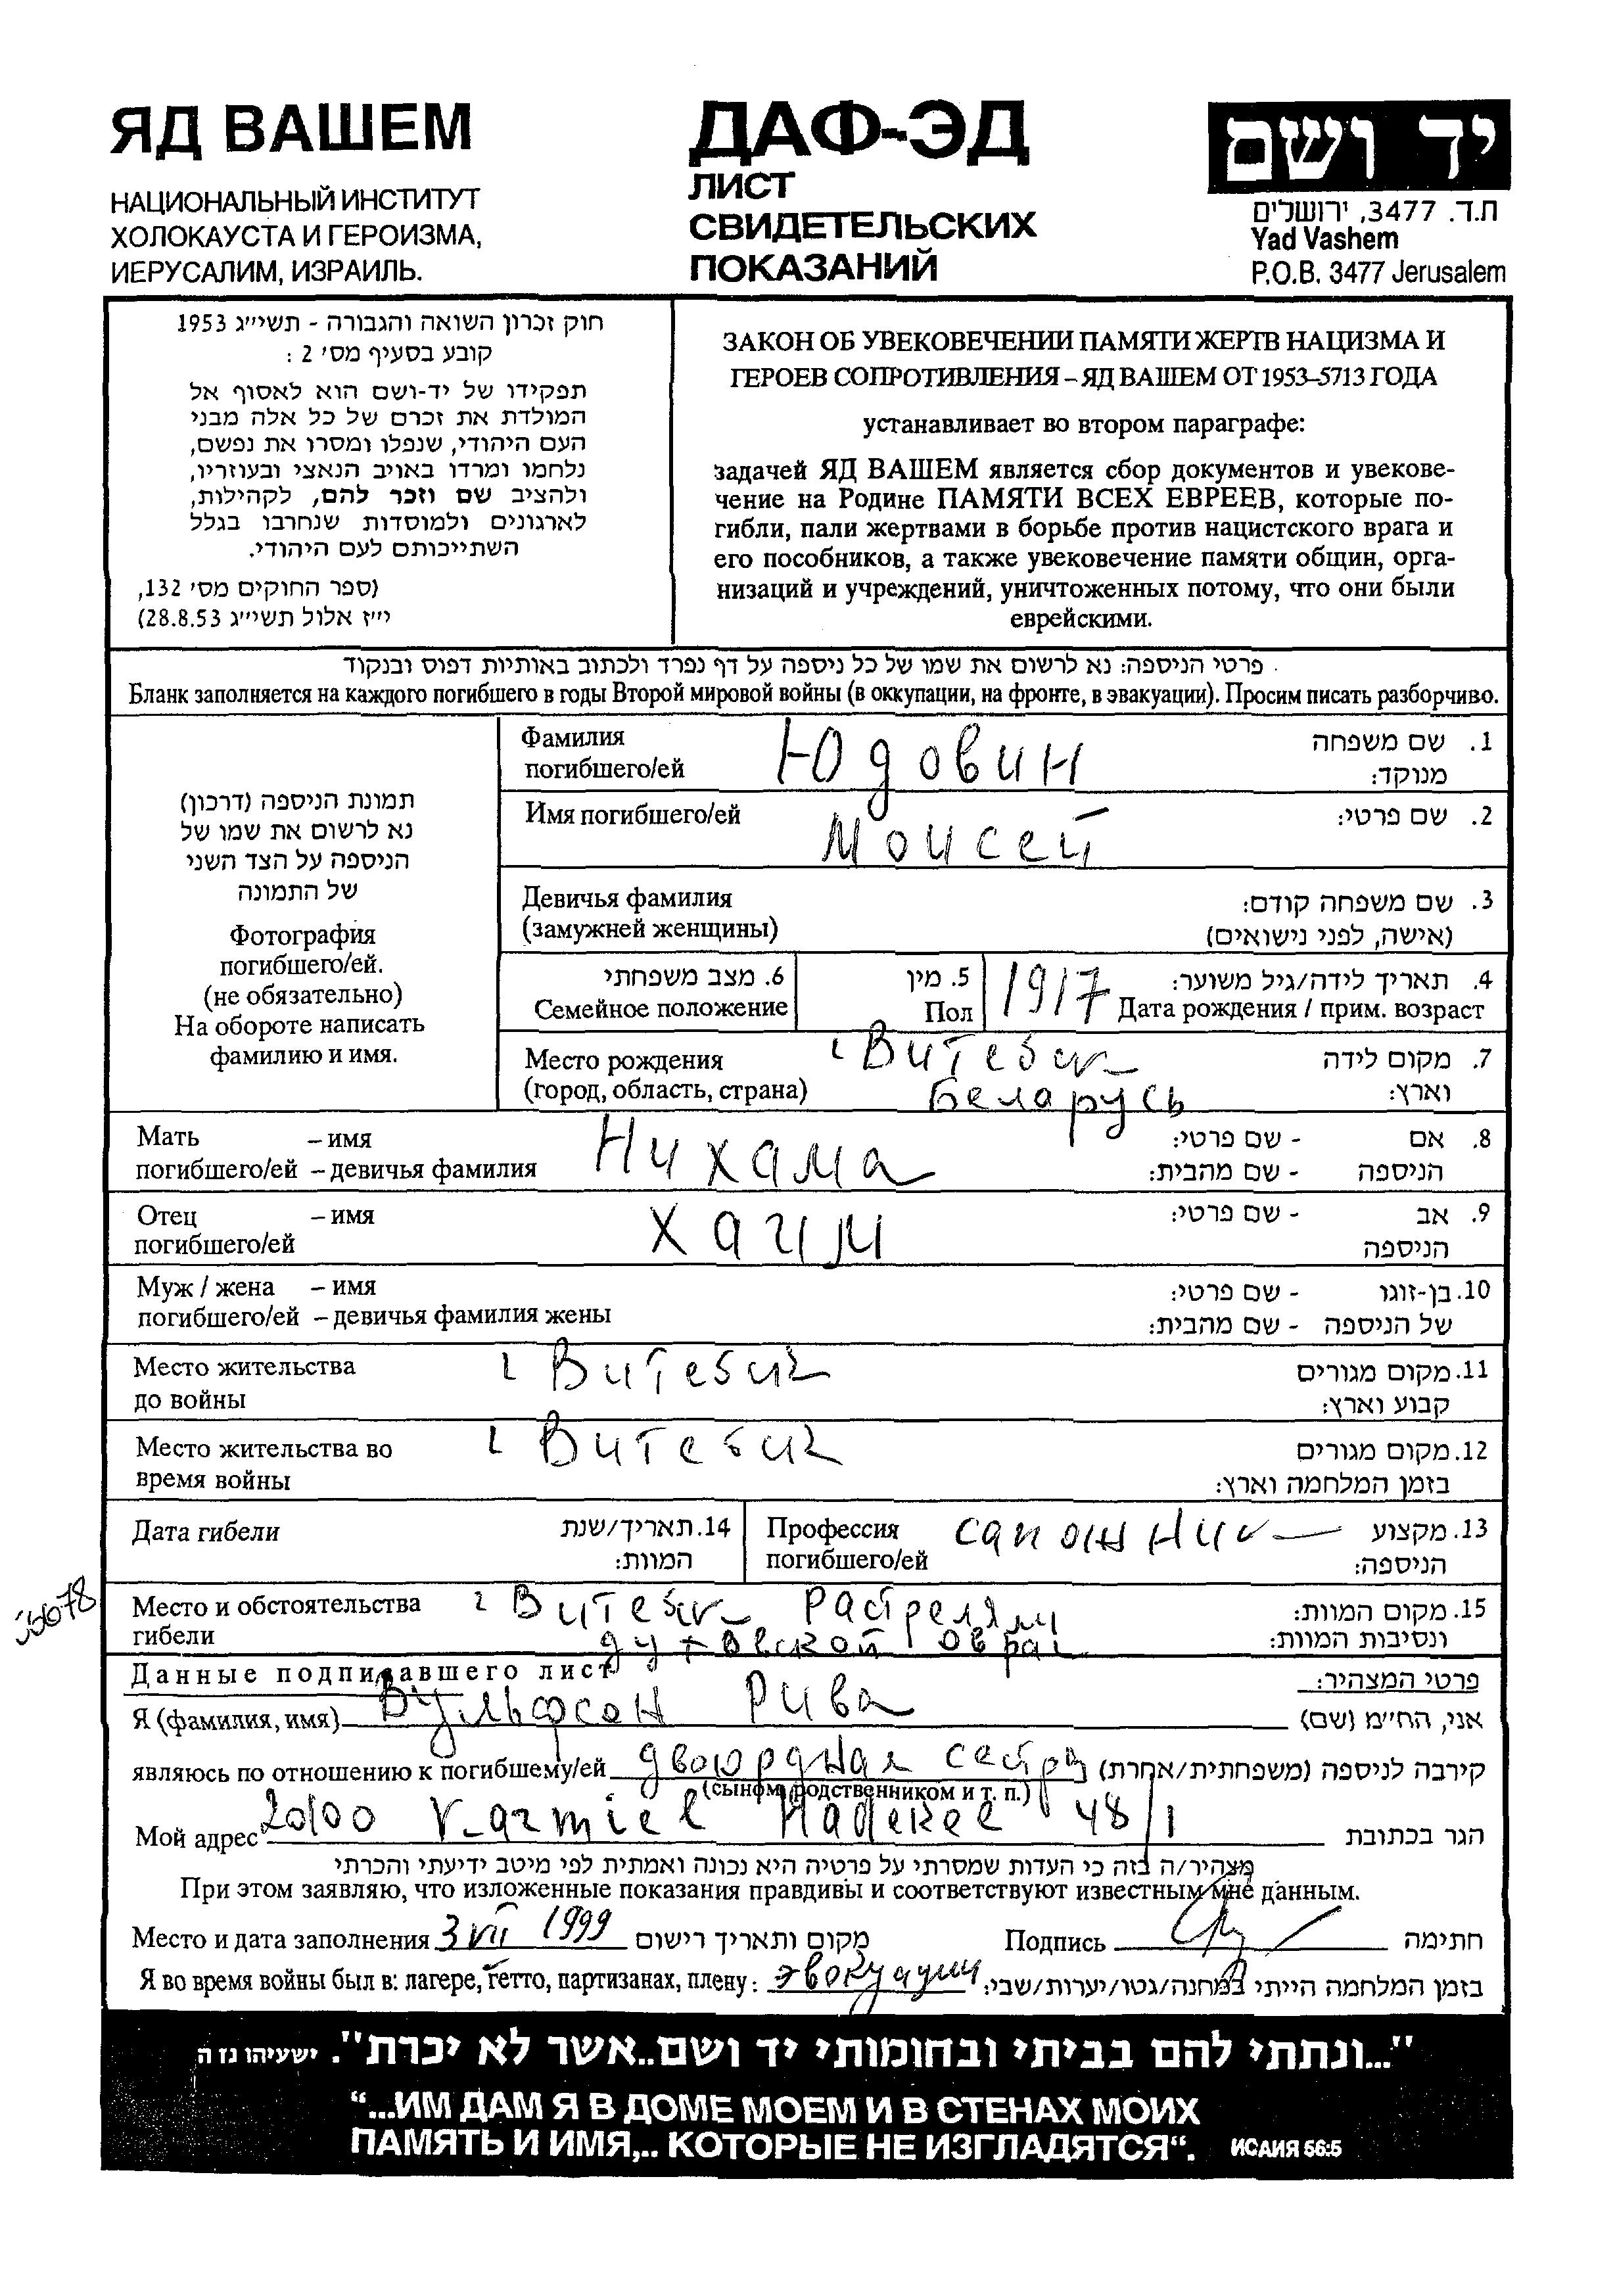 ЯД ВАШЕМ
НАЦИОНАЛЬНЫЙ ИНСТИТУТ
ХОЛОКАУСТА И ГЕРОИЗМА,
ИЕРУСАЛИМ, ИЗРАИЛЬ.
ДАФ-ЭД
ЛИСТ
СВИДЕТЕЛЬСКИХ
ПОКАЗАНИЙ
יד ושם
ת.ד. 3477, ירושלים
Yad Vashem
P.O.B. 3477 Jerusalem
חוק זכרון השואה והגבורה - תשי״ג 1953
קובע בסעיף מס׳ 2 :
תפקידו של יד-ושם הוא לאסוף אל
המולדת את זכרם של כל אלה מבני
העם היהודי, שנפלו ומסרו את נפשם,
נלחמו ומרדו באויב הנאצי ובעוזריו,
ולהציב שם וזכר להם, לקהילות,
לארגונים ולמוסדות שנחרבו בגלל
השתייכותם לעם היהודי.
(ספר החוקים מס׳ 132,
י״ז אלול תשי״ג 28.8.53)
ЗАКОН ОБ УВЕКОВЕЧЕНИИ ПАМЯТИ ЖЕРТВ НАЦИЗМА И
ГЕРОЕВ СОПРОТИВЛЕНИЯ – ЯД ВАШЕМ ОТ 1953–5713 ГОДА
устанавливает во втором параграфе:
задачей ЯД ВАШЕМ является сбор документов и увекове-
чение на Родине ПАМЯТИ ВСЕХ ЕВРЕЕВ, которые по-
гибли, пали жертвами в борьбе против нацистского врага и
его пособников, а также увековечение памяти общин, орга-
низаций и учреждений, уничтоженных потому, что они были
еврейскими.
פרטי הניספה: נא לרשום את שמו של כל ניספה על דף נפרד ולכתוב באותיות דפוס ובנקוד
Бланк заполняется на каждого погибшего в годы Второй мировой войны (в оккупации, на фронте, в эвакуации). Просим писать разборчиво.
תמונת הניספה (דרכון)
נא לרשום את שמו של
הניספה על הצד השני
של התמונה
Фотография
погибшего/ей.
(не обязательно)
На обороте написать
фамилию и имя.
Фамилия Юдовин 1. שם משפחה
погибшего/ей מנוקד:
Имя погибшего/ей Моисей 2. שם פרטי:
Девичья фамилия 3. שם משפחה קודם:
(замужней женщины) (אישה, לפני נישואים)
6. מצב משפחתי 5. מין 1917 4. תאריך לידה/גיל משוער:
Семейное положение Пол Дата рождения / прим. возраст
Место рождения г Витебск 7. מקום לידה
(город, область, страна) Беларусь וארץ:
Мать – имя Нихама 8. אם - שם פרטי:
погибшего/ей – девичья фамилия הניספה - שם מהבית:
Отец – имя Хаим 9. אב - שם פרטי:
погибшего/ей הניספה
Муж / жена – имя 10. בן-זוגו - שם פרטי:
погибшего/ей – девичья фамилия жены של הניספה - שם מהבית:
Место жительства г Витебск 11. מקום מגורים
до войны קבוע וארץ:
Место жительства во г Витебск 12. מקום מגורים
время войны בזמן המלחמה וארץ:
Дата гибели 14. תאריך/שנת Профессия сапожник 13. מקצוע
המוות: погибшего/ей הניספה:
Место и обстоятельства г Витебск Растреляли 15. מקום המוות:
гибели духовской овраг ונסיבות המוות:
Данные подписавшего лист פרטי המצהיר:
Я (фамилия, имя) Вульфсон Рива אני, הח״מ (שם)
являюсь по отношению к погибшему/ей двоюрдная сестра קירבה לניספה (משפחתית/אחרת)
(сыном, родственником и т. п.)
Мой адрес 20100 Karmiel Hadekel 48/1 הגר בכתובת
מצהיר/ה בזה כי העדות שמסרתי על פרטיה היא נכונה ואמתית לפי מיטב ידיעתי והכרתי
При этом заявляю, что изложенные показания правдивы и соответствуют известным мне данным.
Место и дата заполнения 3 VII 1999 מקום ותאריך רישום Подпись חתימה
Я во время войны был в: лагере, гетто, партизанах, плену: эвокуации בזמן המלחמה הייתי במחנה/גטו/יערות/שבי:
"...ונתתי להם בביתי ובחומותי יד ושם..אשר לא יכרת". ישעיהו נז ה
“...ИМ ДАМ Я В ДОМЕ МОЕМ И В СТЕНАХ МОИХ
ПАМЯТЬ И ИМЯ,.. КОТОРЫЕ НЕ ИЗГЛАДЯТСЯ“. ИСАИЯ 56:5